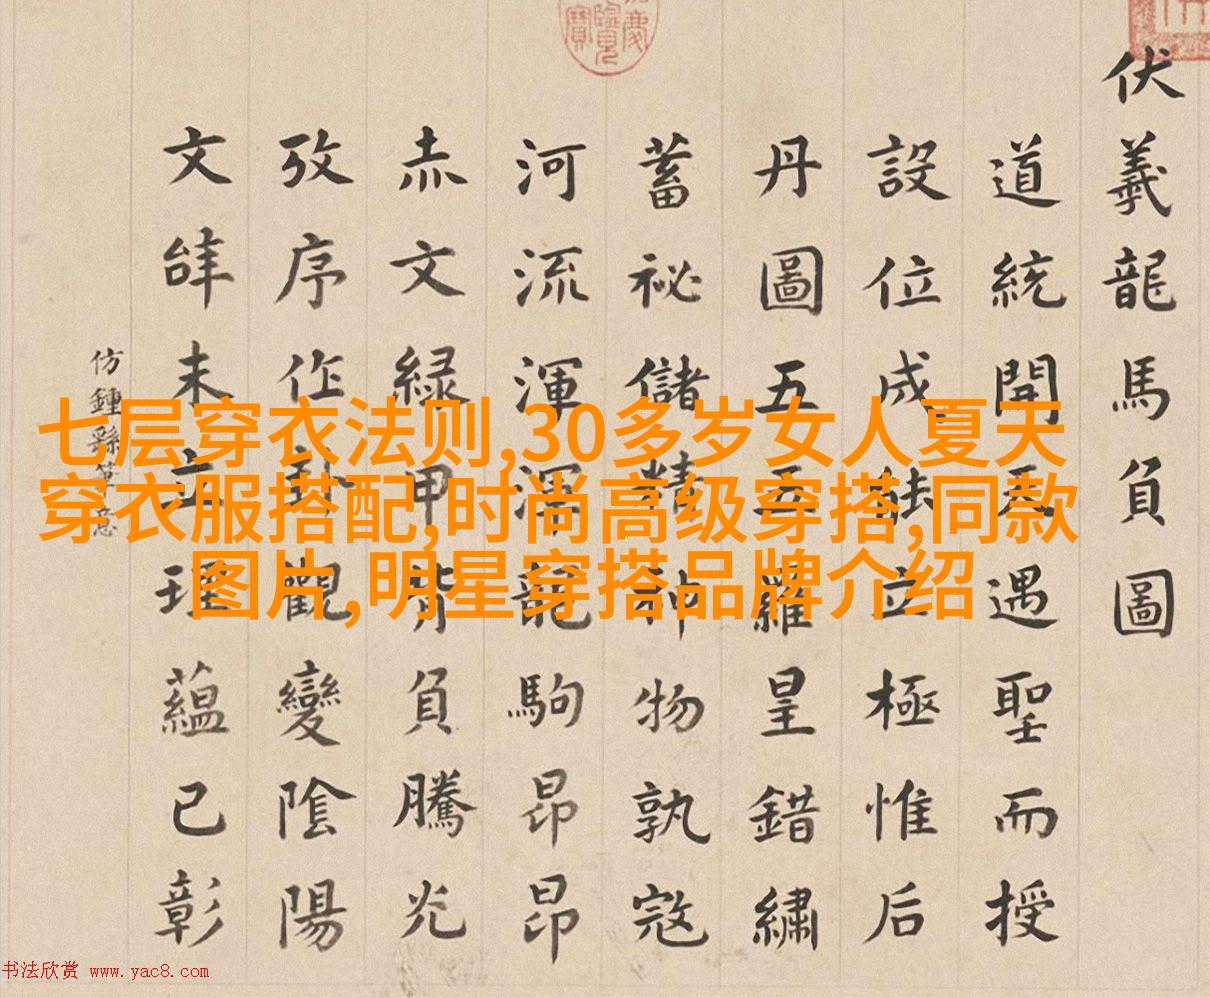 伏羲龍馬負圖
道統開天遇聖而授
設位成能立極惟后
丹圖五五羅皇錯繡
蓄祕儲精神物孰寇
河流渾渾龍駒昂昂
赤文緑甲背負騰光
攷序作卦觀變陰陽
文辝未立理蘊已彰
仿鍾繇筆意
七层穿衣法则,30多岁女人夏天
穿衣服搭配,时尚高级穿搭,同款
图片,明星穿搭品牌介绍
书法欣赏 www.yac8.com